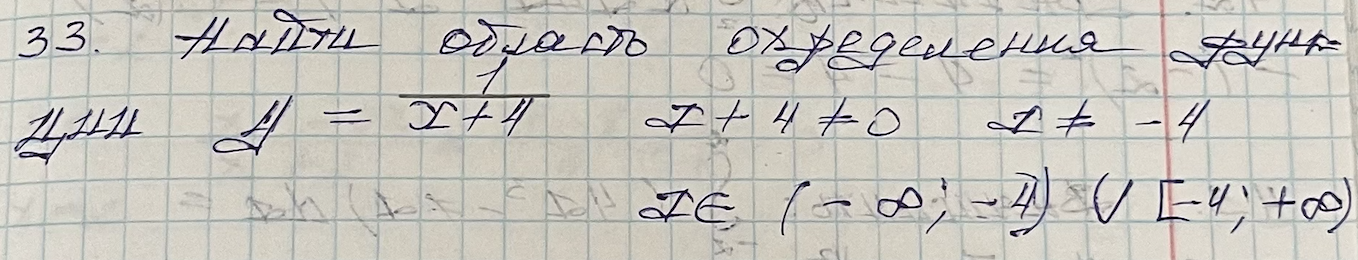 33. Найти область определения функ
ции y = 1/(x+4) x + 4 ≠ 0 x ≠ -4
x ∈ (-∞; -4) ∪ [-4; +∞)